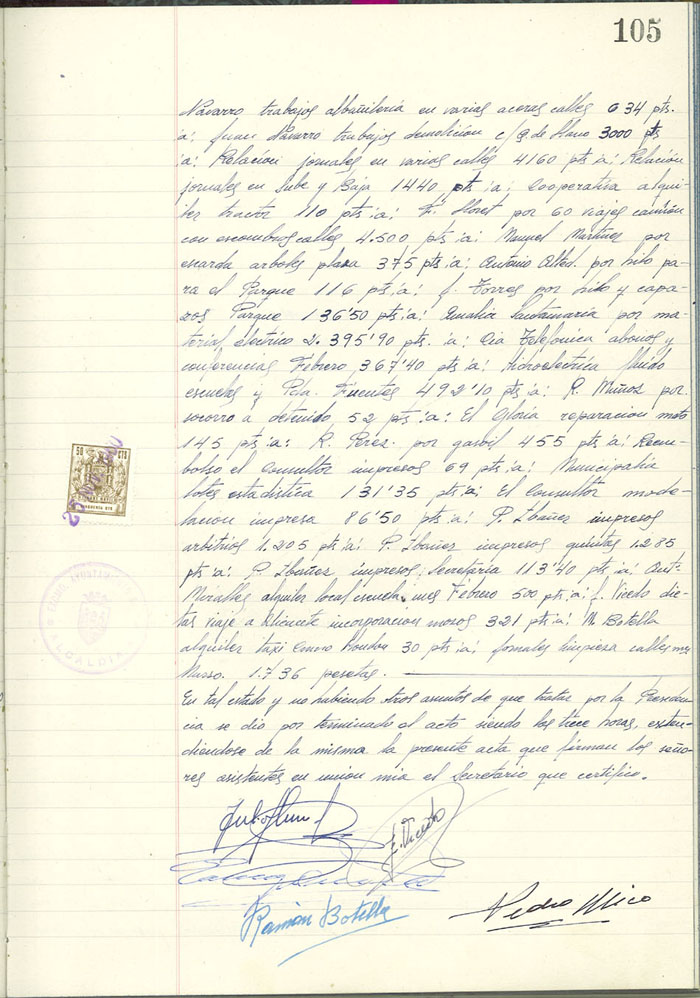 105
Navarro trabajos albañilería en varias aceras calles 634 pts.
a: Juan Navarro trabajos demolición c/ de Llano 3000 pts
a: Relación jornales en varias calles 4160 pts :a: Relación
jornales en Sube y Baja 1440 pts :a: Cooperativa alqui-
ler tractor 110 pts :a: F. Lloret por 60 viajes camión
con escombros calles 4.500 pts :a: Manuel Martinez por
escarda arboles plaza 375 pts :a: Antonio por hilo pa-
ra el Parque 116 pts :a: J. Torres por hilo y capa-
zos Parque 136'50 pts :a: Amalia Santamaria por ma-
terial electrico 2.395'90 pts. :a: Cia Telefonica abonos y
conferencias Febrero 367'40 pts :a: Hidroelectrica fluido
escuelas y Pda. Fuentes 492'10 pts :a: R. Muñoz por
socorro a detenido 52 pts :a: El Gloria reparacion moto
145 pts :a: R. Perez. por gasoil 455 pts :a: Reem-
bolso el Consultor impresos 69 pts :a: Municipalia
lotes estadistica 131'35 pts :a: El Consultor mode-
lacion impresa 86'50 pts :a: P. Ibañez impresos
arbitrios 1.205 pts :a: P. Ibañez impresos quintas 1.285
pts :a: P. Ibañez impresos Secretaria 113'40 pts :a:
Miralles alquiler local escuela mes Febrero 500 pts :a: J. Vicedo die-
tas viaje a Alicante incorporacion mozos 321 pts :a: M. Botella
alquiler taxi 30 pts :a: Jornales limpieza calles mes
Marzo. 1.736 pesetas.
En tal estado y no habiendo otros asuntos de que tratar por la Presiden-
cia se dió por terminado el acto siendo las trece horas, exten-
diendose de la misma la presente acta que firman los seño-
res asistentes en union mia el Secretario que certifico.
50 CTS
EXCMO. AYUNTAMIENTO
ALCALDIA
J. Vicedo
Ramón Botella
Pedro Mico